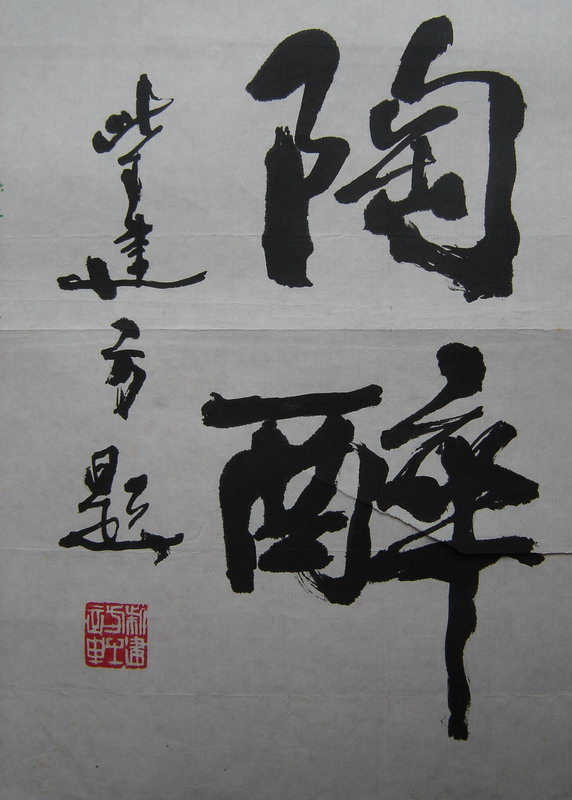 陶醉
柴建方题